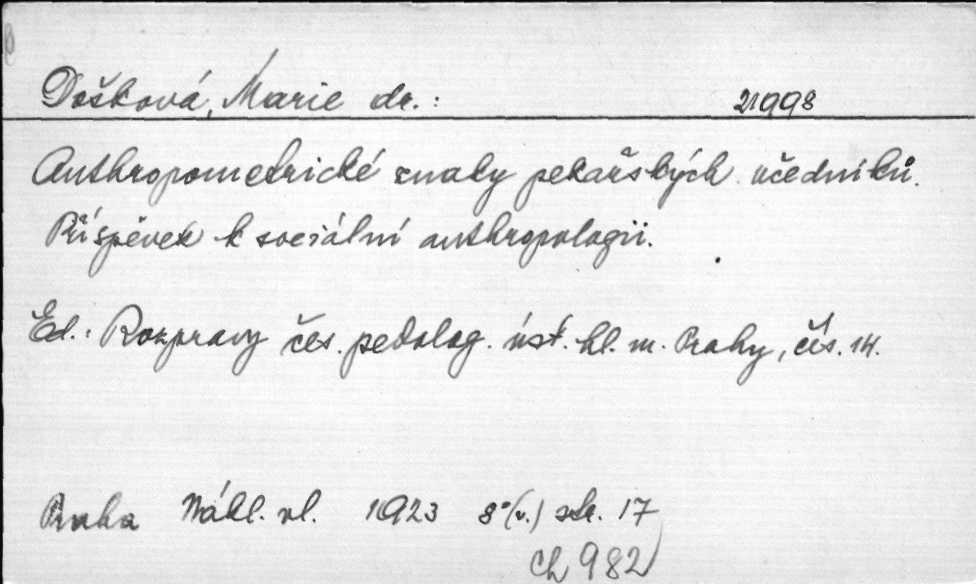 Došková, Marie dr.: 21998
Anthropometrické znaky pekařských učedníků.
Příspěvek k sociální anthropologii.
Ed.: Rozpravy čes. pedolog. úst. hl. m. Prahy, čís. 14.
Praha Nákl. vl. 1923 8°(v.) str. 17
Ch 982